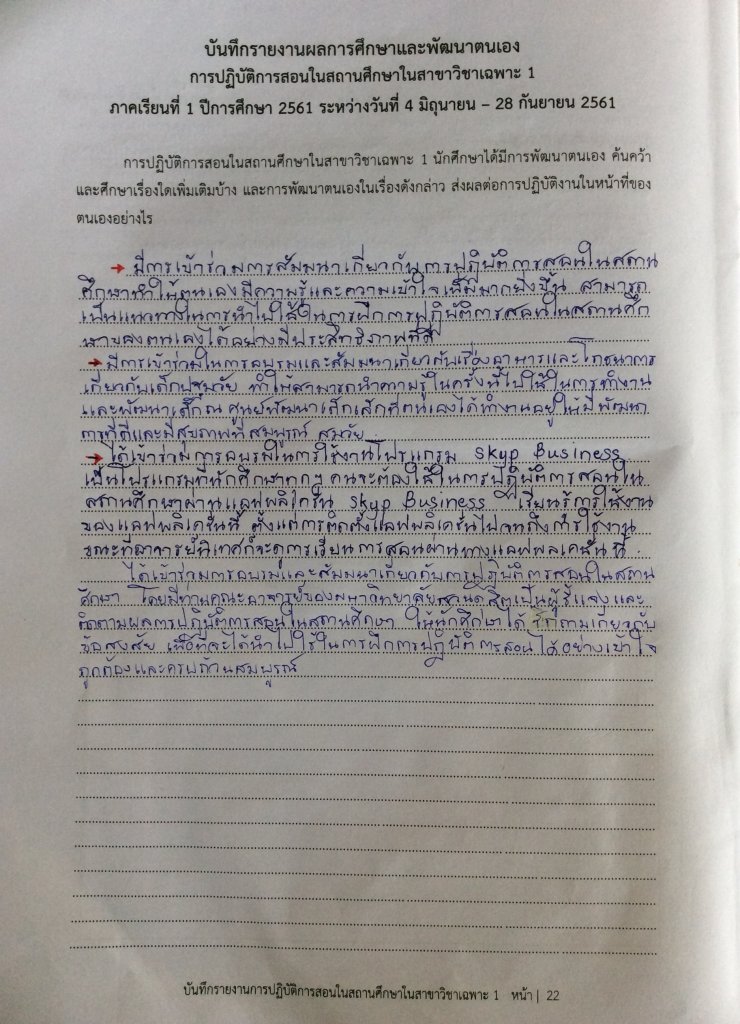 บันทึกรายงานผลการศึกษาและพัฒนาตนเอง
การปฏิบัติการสอนในสถานศึกษาในสาขาวิชาเฉพาะ 1
ภาคเรียนที่ 1 ปีการศึกษา 2561 ระหว่างวันที่ 4 มิถุนายน – 28 กันยายน 2561
การปฏิบัติการสอนในสถานศึกษาในสาขาวิชาเฉพาะ 1 นักศึกษาได้มีการพัฒนาตนเอง ค้นคว้า
และศึกษาเรื่องใดเพิ่มเติมบ้าง และการพัฒนาตนเองในเรื่องดังกล่าว ส่งผลต่อการปฏิบัติงานในหน้าที่ของ
ตนเองอย่างไร
→ มีการเข้าร่วมการสัมมนาเกี่ยวกับการปฏิบัติการสอนในสถาน
ศึกษาทำให้ตนเองมีความรู้และความเข้าใจเพิ่มมากยิ่งขึ้น สามารถ
เป็นแนวทางในการนำไปใช้ในการฝึกการปฏิบัติการสอนในสถานศึก
ษาของตนเองได้อย่างมีประสิทธิภาพที่ดี
→ มีการเข้าร่วมในการอบรมและสัมมนาเกี่ยวกับเรื่องอาหารและโภชนาการ
เกี่ยวกับเด็กปฐมวัย ทำให้สามารถนำความรู้ในครั้งนี้ไปใช้ในการทำงาน
และพัฒนาเด็กณ ศูนย์พัฒนาเด็กเล็กที่ตนเองได้ทำงานอยู่ให้มีพัฒนา
การที่ดีและมีสุขภาพที่สมบูรณ์ สมวัย
→ ได้เข้าร่วมการอบรมในการใช้งานโปรแกรม Skyp Business
เป็นโปรแกรมที่นักศึกษาทุกๆ คนจะต้องใช้ในการปฏิบัติการสอนใน
สถานศึกษาผ่านแอพพลิเคชั่น Skyp Business เรียนรู้การใช้งาน
ของแอพพลิเคชั่นนี้ ตั้งแต่การติดตั้งแอพพลิเคชั่นไปจนถึงการใช้งาน
ขณะที่อาจารย์นิเทศก์จะดูการเรียนการสอนผ่านทางแอพพลิเคชั่นนี้
ได้เข้าร่วมการอบรมและสัมมนาเกี่ยวกับการปฏิบัติการสอนในสถาน
ศึกษา โดยมีท่านคณะอาจารย์ของมหาวิทยาลัยสวนดุสิตเป็นผู้ชี้แจงและ
ติดตามผลการปฏิบัติการสอนในสถานศึกษา ให้นักศึกษาได้ ซักถามเกี่ยวกับ
ข้อสงสัย เพื่อที่จะได้นำไปใช้ในการฝึกการปฏิบัติการสอนได้อย่างเข้าใจ
ถูกต้องและครบถ้วนสมบูรณ์
บันทึกรายงานการปฏิบัติการสอนในสถานศึกษาในสาขาวิชาเฉพาะ 1 หน้า | 22